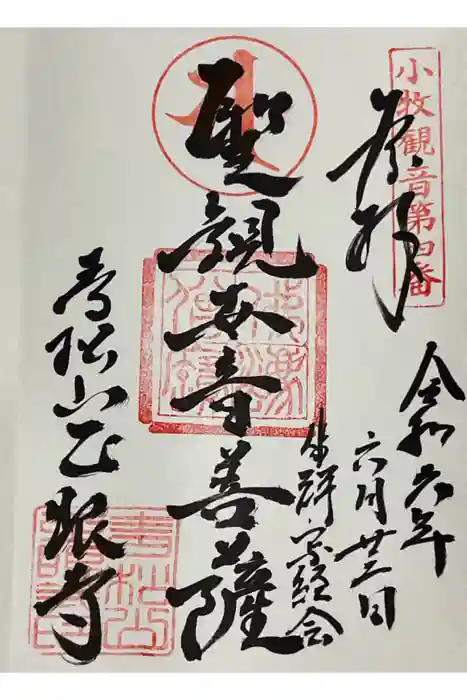 小牧観音第四番
奉拝
令和六年
六月廿二日
坐禅写経会
聖観世音菩薩
青松山正眼寺